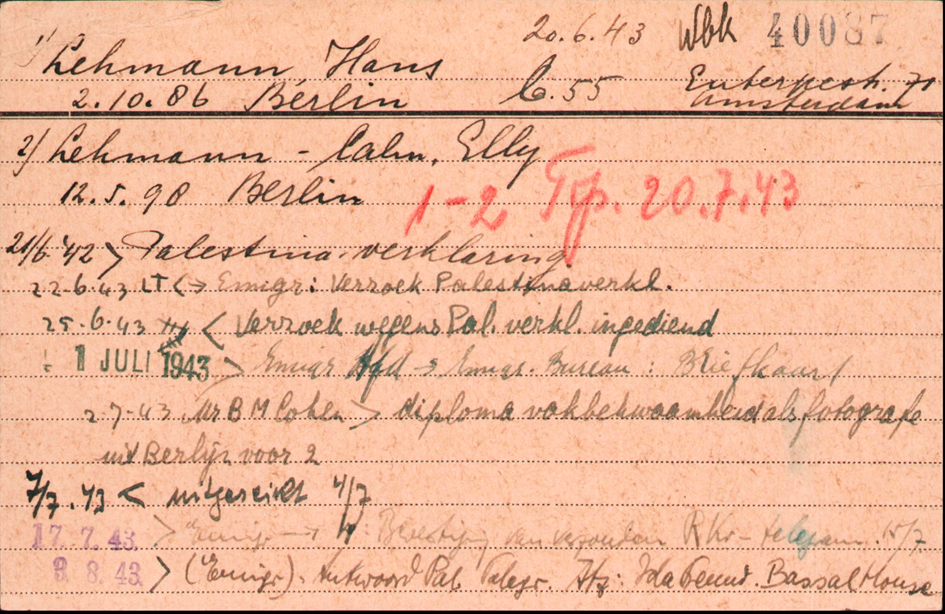 20.6.43 Wbk 40087
1) Lehmann, Hans
2.10.86 Berlin 6.55 Euterpestr. 71 Amsterdam
2) Lehmann - Cahn, Elly
12.5.98 Berlin 1-2 Tp. 20.7.43
21/6 '42 > Palestina-verklaring.
22-6-43 LT <-> Emigr: Verzoek Palestinaverkl.
25-6-43 < Verzoek wegens Pal. verkl. ingediend
1 JULI 1943 > Emigr Afd → Emigr. Bureau: Briefkaart
2-7-43 Mr B M Cohen > diploma vakbekwaamheid als fotografe
uit Berlijn voor 2
7/7.43 < uitgereikt 4/7
17.7.43 > Emigr → : Bevestiging van verzonden R Kr - telegram. 15/7
9.8.43 > (Emigr). Antwoord Pal. Telegr. Afz: Ida Bassal House